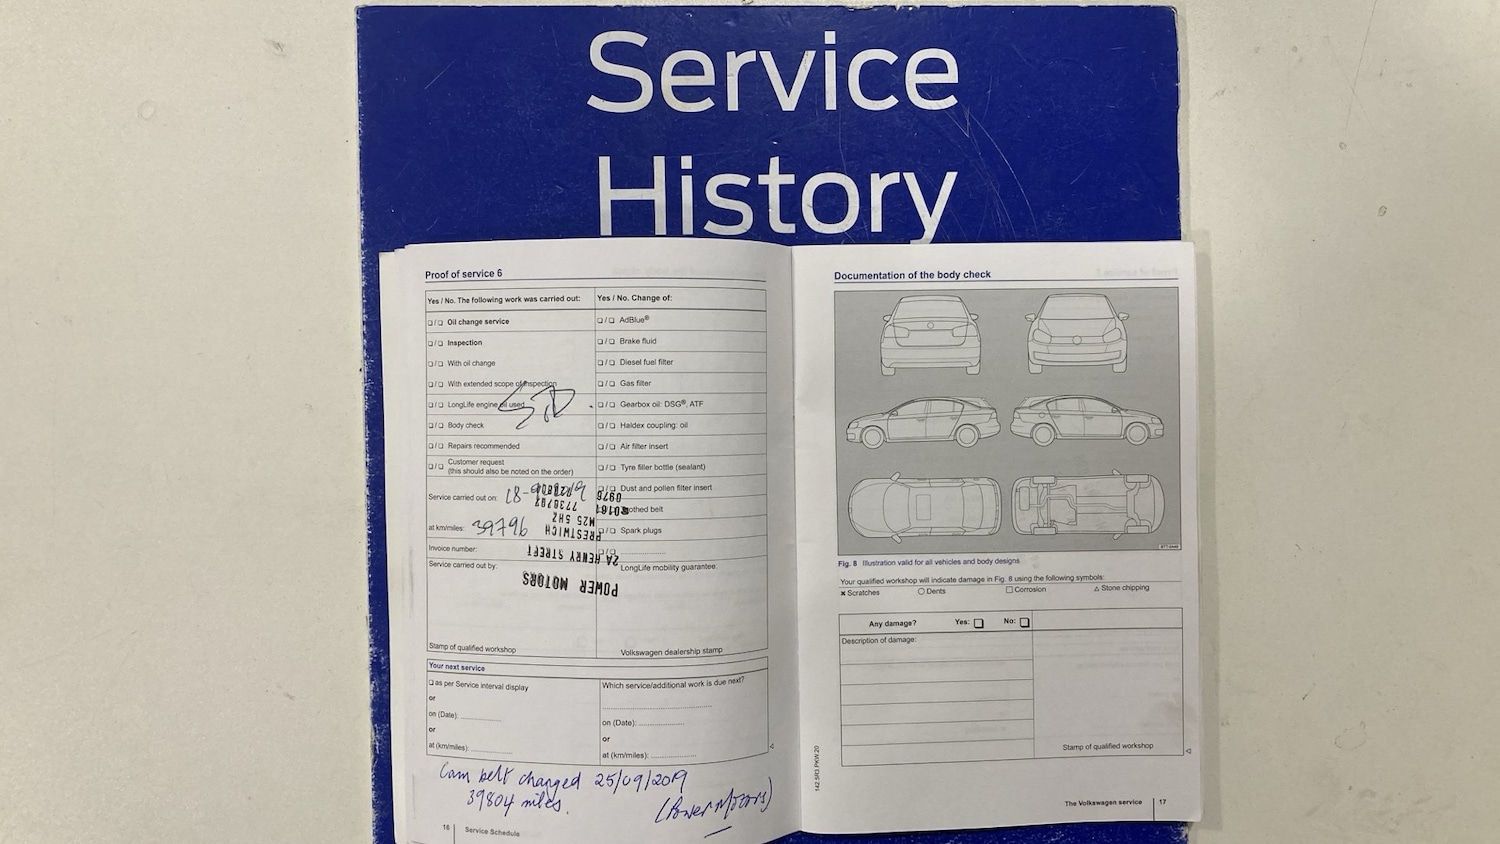 Service
History
Proof of service 6
Yes / No. The following work was carried out:
Yes / No. Change of:
Oil change service
Inspection
With oil change
With extended scope of inspection
LongLife engine oil used
Body check
Repairs recommended
Customer request
(this should also be noted on the order)
Service carried out on:
at km/miles: 39796
Invoice number:
Service carried out by:
Stamp of qualified workshop
AdBlue®
Brake fluid
Diesel fuel filter
Gas filter
Gearbox oil: DSG®, ATF
Haldex coupling: oil
Air filter insert
Tyre filler bottle (sealant)
Dust and pollen filter insert
Spark plugs
LongLife mobility guarantee:
Volkswagen dealership stamp
POWER MOTORS
2A HENRY STREET
PRESTWICH
M25 5HZ
Your next service
as per Service interval display
or
on (Date):
or
at (km/miles):
Which service/additional work is due next?
on (Date):
or
at (km/miles):
Cam belt changed 25/09/2019
39804 miles.
(Power Motors)
16 Service Schedule
Documentation of the body check
Fig. 8 Illustration valid for all vehicles and body designs
Your qualified workshop will indicate damage in Fig. 8 using the following symbols:
Scratches
Dents
Corrosion
Stone chipping
Any damage? Yes: No:
Description of damage:
Stamp of qualified workshop
142.5R3.PKW.20
The Volkswagen service 17